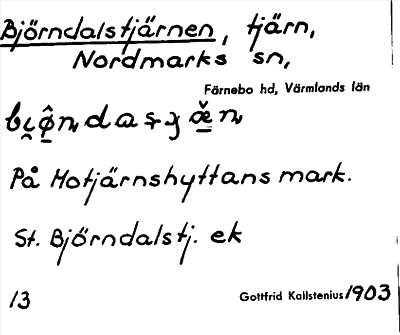 Björndalstjärnen, tjärn,
Nordmarks sn,
Färnebo hd, Värmlands län
På Motjärnshyttans mark.
St. Björndalstj. ek
13 Gottfrid Kallstenius 1903